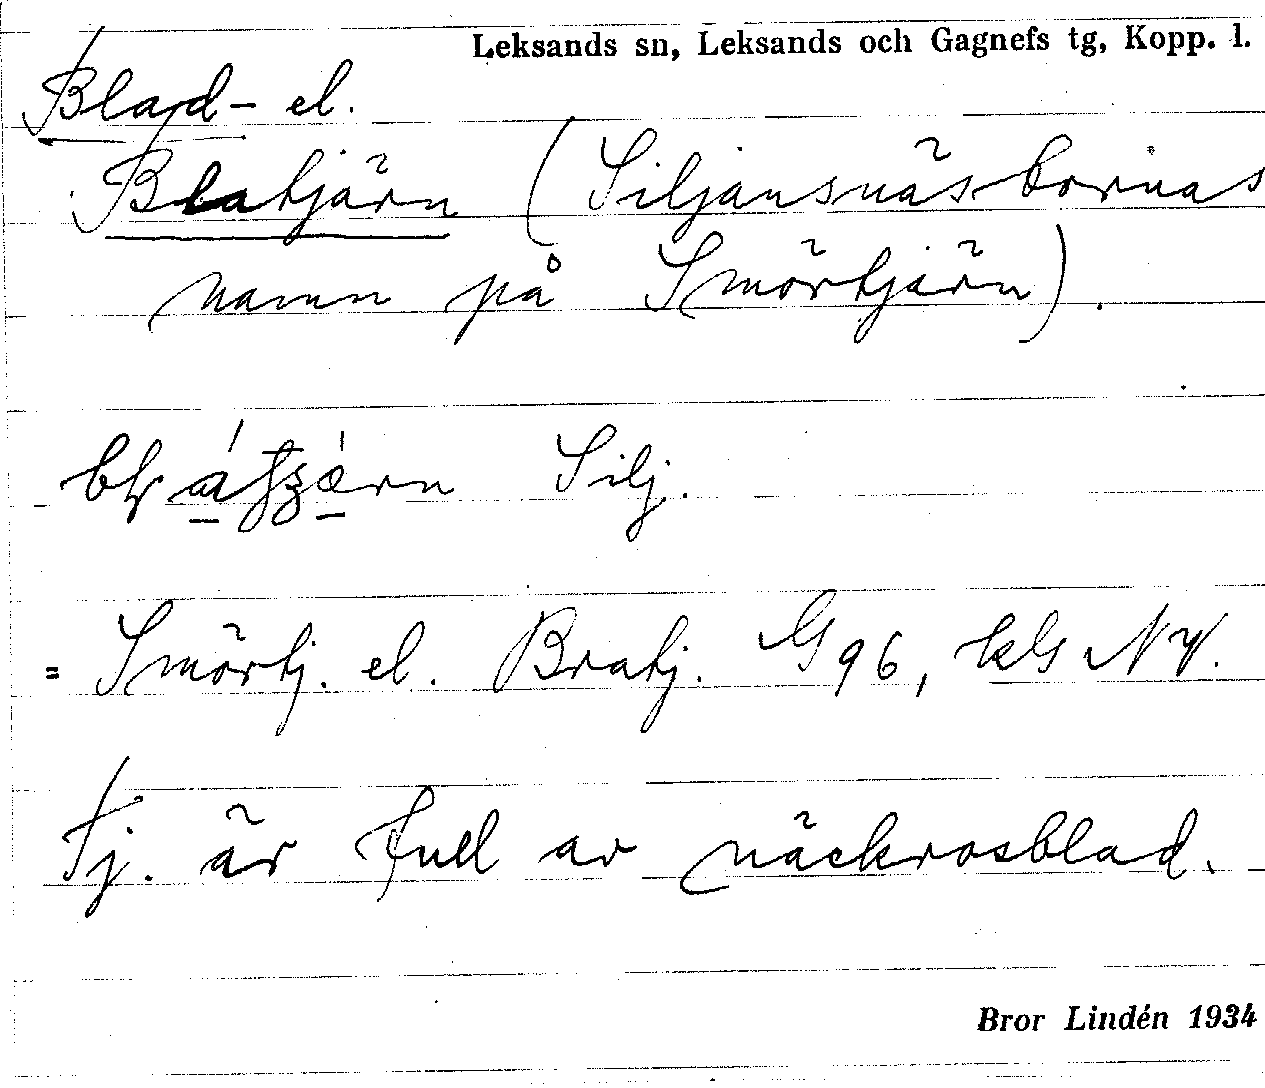 Leksands sn, Leksands och Gagnefs tg, Kopp. l.
Blad- el.
Blatjärn (Siljansnäsbornas
namn på Smörtjärn).
Silj.
= Smörtj. el. Bratj. G96, kG NV.
Tj. är full av näckrosblad.
Bror Lindén 1934